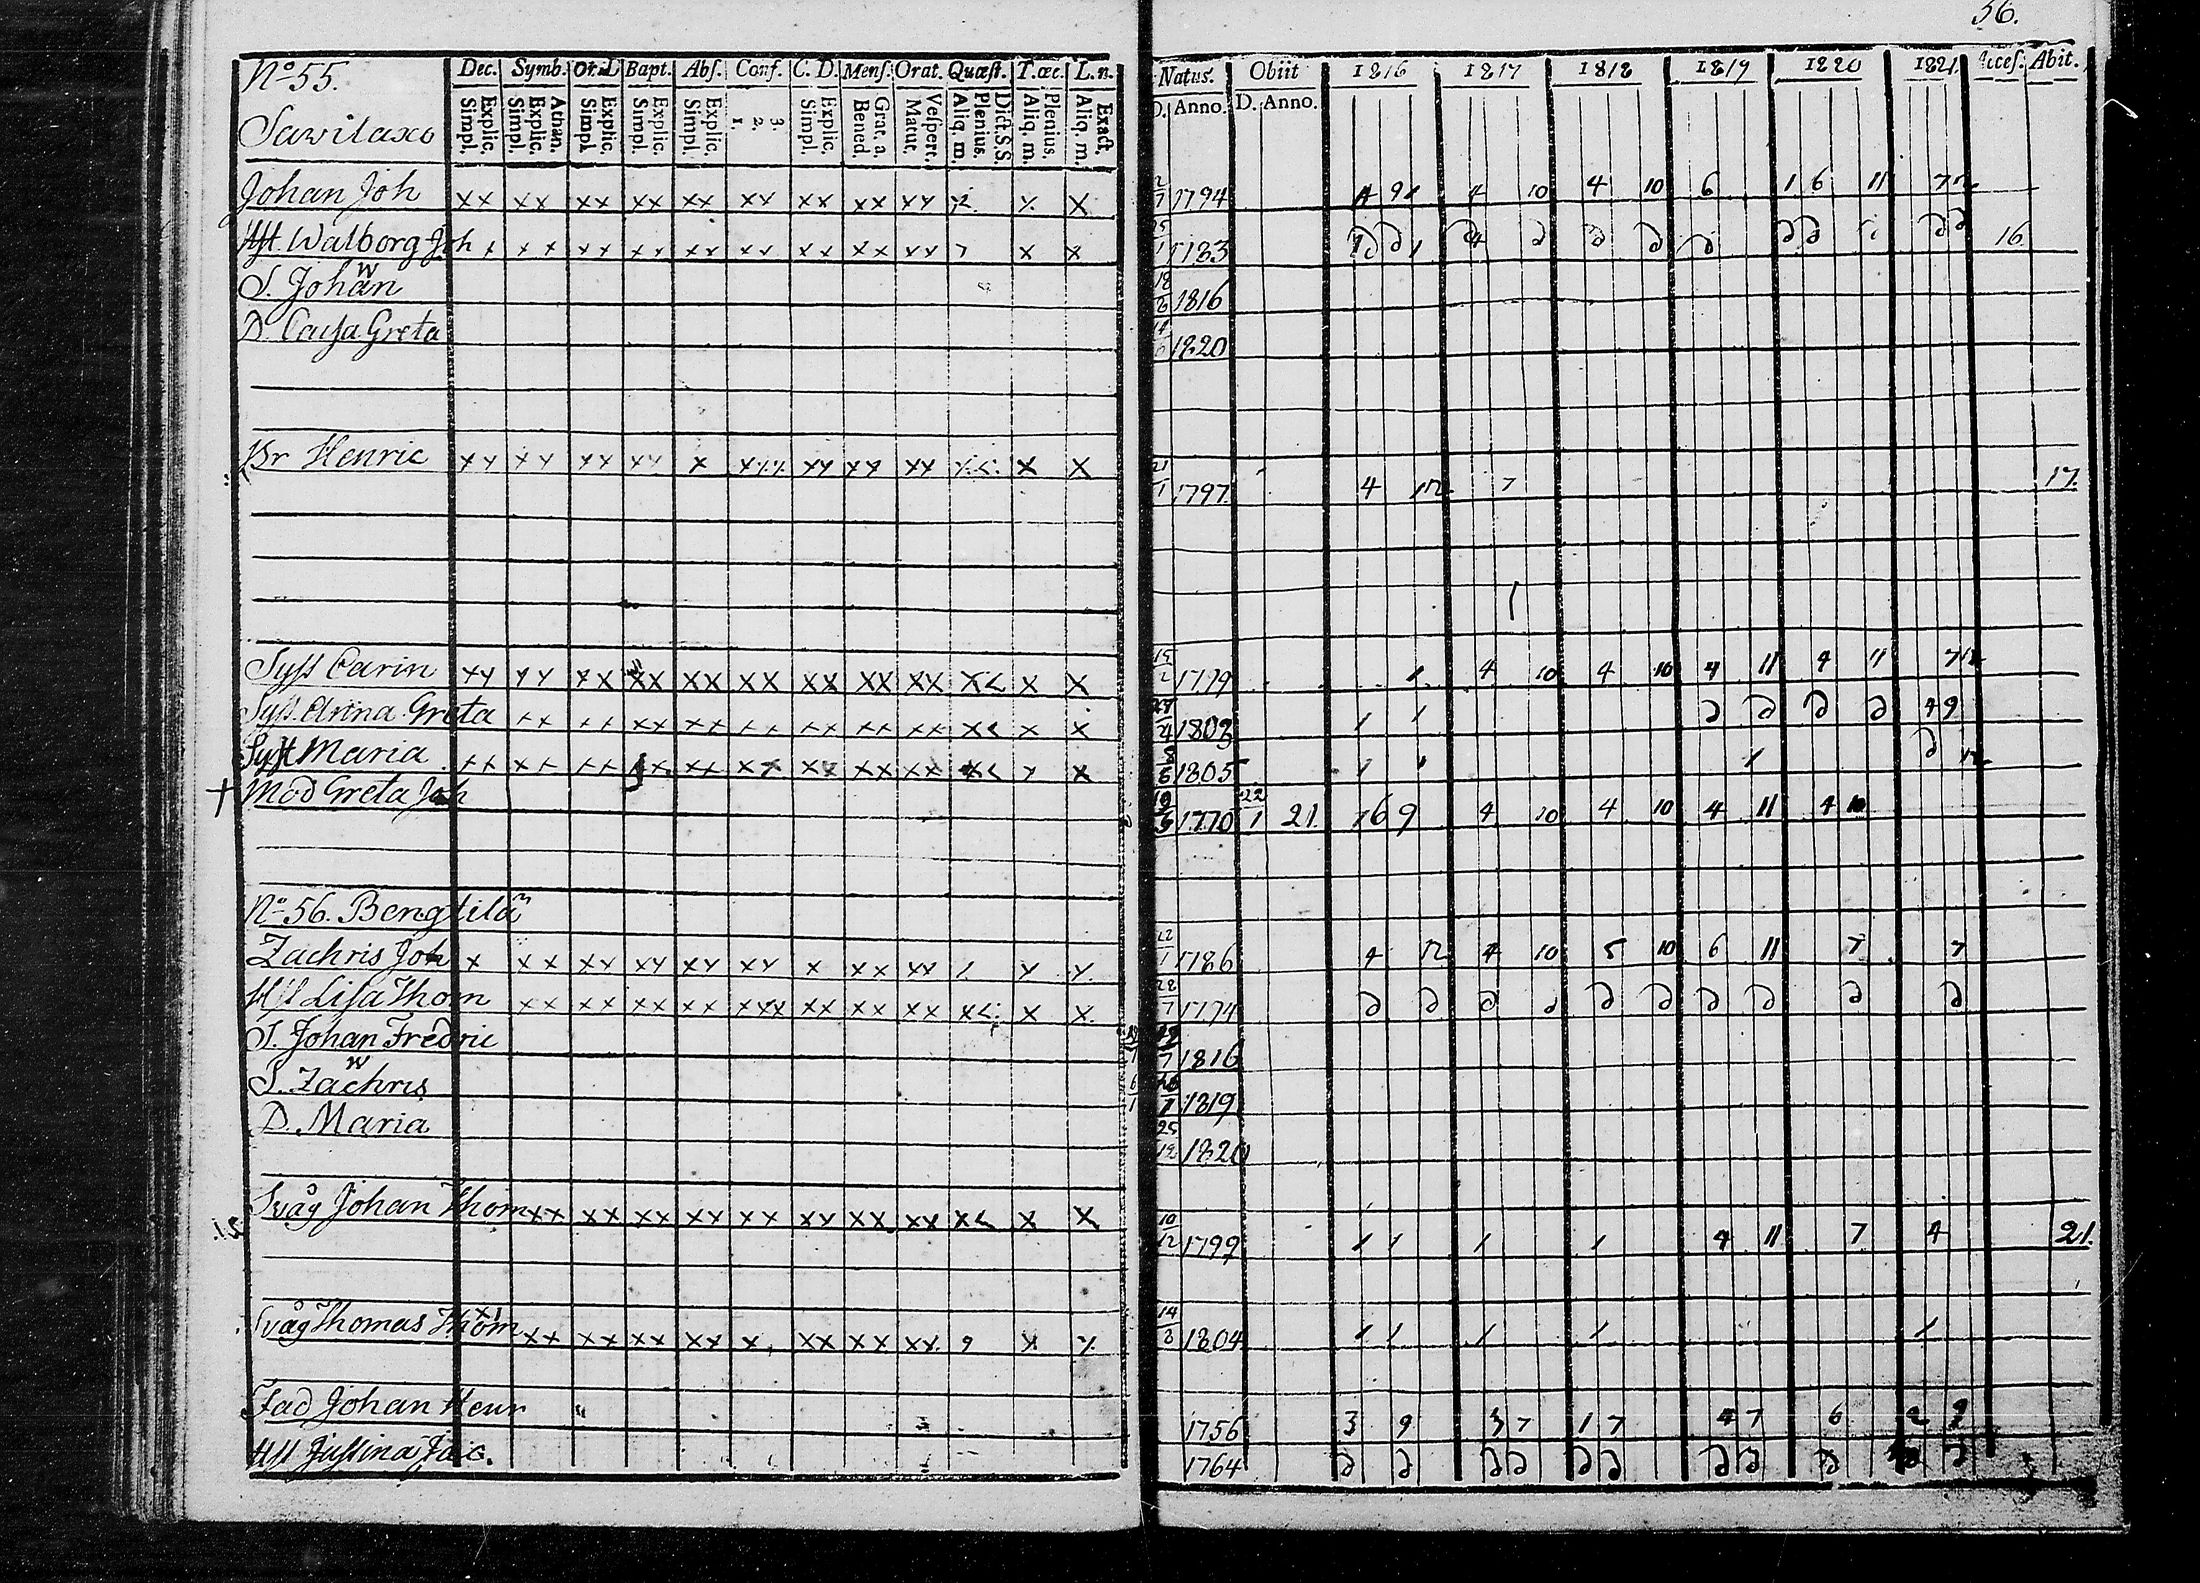 56.
No 55. Dec. Symb. Or. D Bapt. Abs. Conf. C. D. Mens. Orat. Quæst. T. œc. L. n. Natus. Obiit 1816 1817 1818 1819 1820 1821. Acces. Abit.
Savilaxo Simpl. Explic. Simpl. Explic. Athan. Simpl. Explic. Simpl. Explic. Simpl. Explic. 1. 2. 3. Simpl. Explic. Bened. Grat. a. Matut. Vespert. Aliq. m. Plenius. Dict. S. S. Aliq. m. Plenius. Aliq. m. Exact. D. Anno. D. Anno.
Johan Joh xx xx xx xx xx xx xx xx xx x x 1794 4 9 1 4 10 4 10 6 1 6 11 7 12
Hst. Walborg Joh x xx xx xx xx xx xx xx xx x x 1783 16
S. Johan 1816
D. Caisa Greta 1820
Br Henric xx xx xx xx x xxx xx xx xx x< x x 21/1 1797 4 12 7 17.
Syss Carin xx xx xx xx xx xx xx xx xx x< x x 1779 1 4 10 4 10 4 11 4 11 7 12
Syss. Anna Greta xx xx xx xx xx xx xx xx x< x x 1803 1 1 4 9
Syst Maria xx xx xx xx xx xx xx xx xx x< x x 1805 1 1 1 12
+ Mod Greta Joh 1770 22/1 21. 1 6 9 4 10 4 10 4 11 4 10
No 56. Bengtilä
Zachris Joh x xx xx xx xx xx x xx xx 1 x x 22/1 1786 4 12 4 10 5 10 6 11 7 7
Hst Lisa Thom xx xx xx xx xxx xx xx xx x< x x 28/7 1774
S. Johan Fredric 1816
S. Zachris 1819
D. Maria 25/12 1820
Svåg Johan Thom xx xx xx xx xx xx xx xx x< x x 10/12 1799 1 1 1 1 4 11 7 4 21.
Svåg Thomas Thom xx xx xx xx x xx xx xx 9 x x 14/8 1804 1 1 1 1 1
Fad Johan Henr 1756 3 9 3 7 1 7 4 7 6 2 9
Hst Justina Jac. 1764